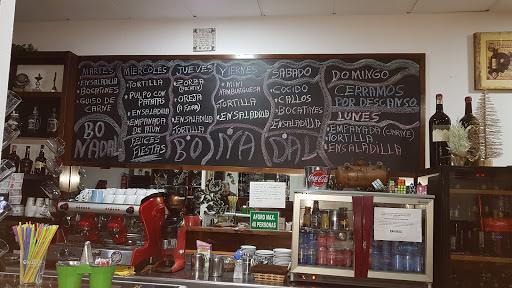 MARTES
• ENSALADILLA
• BOCATINES
• GUISO DE
CARNE
BO
NADAL
MIERCOLES
• TORTILLA
• PULPO CON
PATATAS
• ENSALADILLA
• EMPANADA
DE ATUN
FELICES
FIESTAS
JUEVES
• ZORZA
• OREJA
• ENSALADILLA
TORTILLA
BO
VIERNES
• MINI
HAMBURGUESA
TORTILLA
• ENSALADILLA
NA
SABADO
• COCIDO
• CALLOS
• BOCATINES
• ENSALADILLA
DAL
DOMINGO
CERRAMOS
POR DESCANSO
LUNES
• EMPANADA (CARNE)
TORTILLA
ENSALADILLA
Coca-Cola
AFORO MAX.
40 PERSONAS